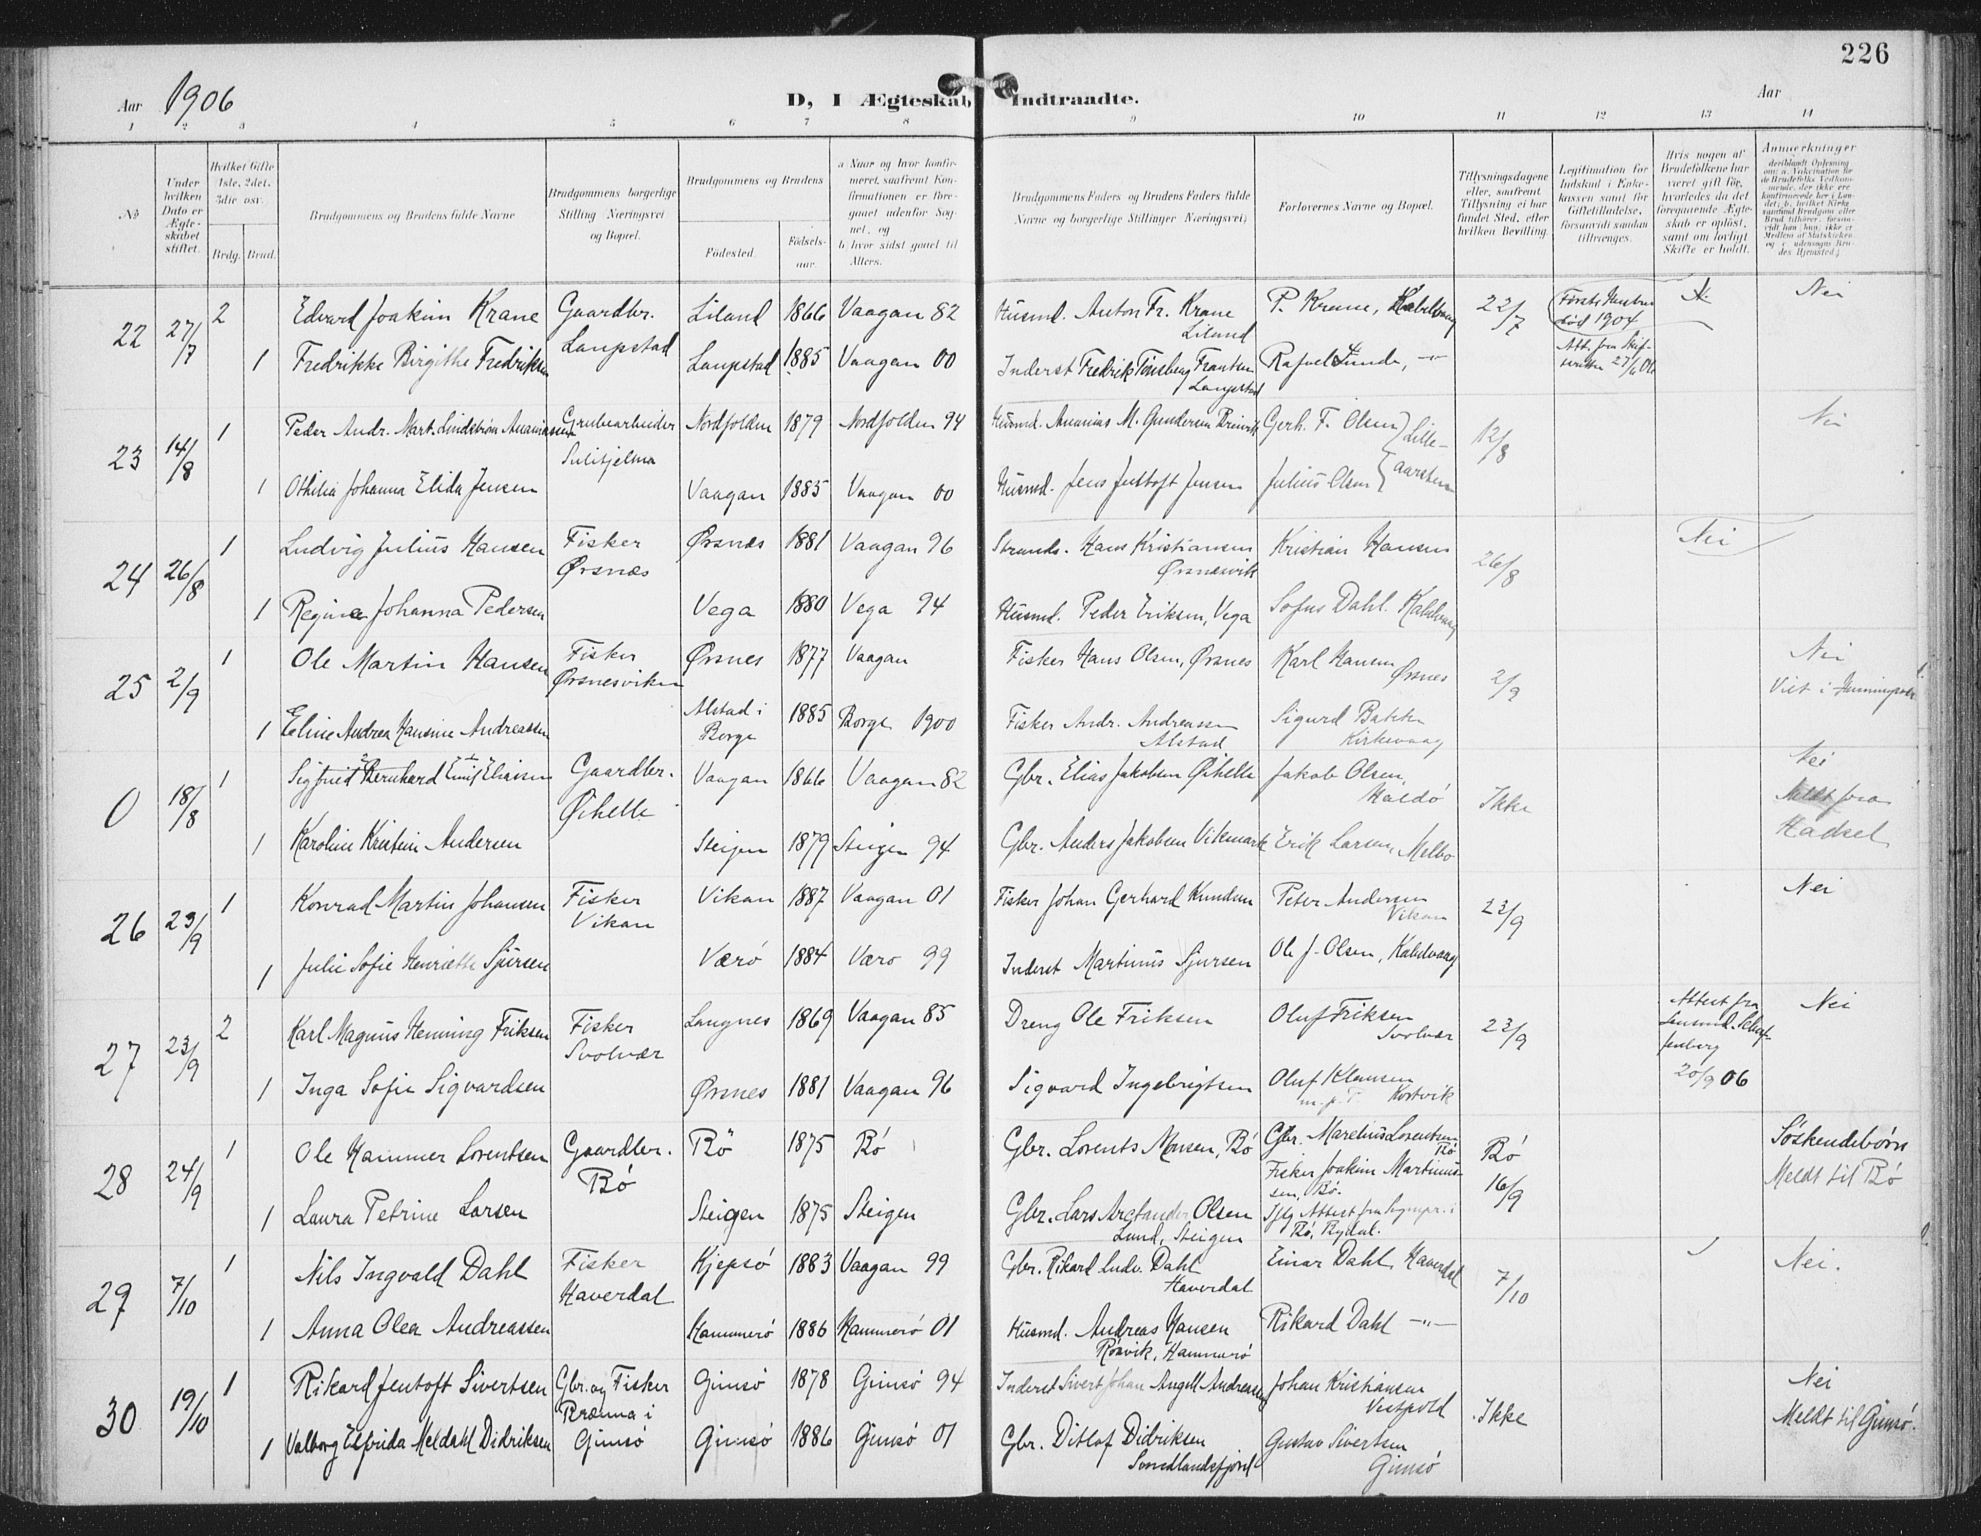 226
Aar 1906
D, I Ægteskab Indtraadte.
Aar
1 2 3 4 5 6 7 8 9 10 11 12 13 14
No
Under hvilken Dato er Ægteskabet stiftet.
Hvilket Gifte 1ste, 2det, 3die osv.
Brdg. Brud.
Brudgommens og Brudens fulde Navne
Brudgommens borgerlige Stilling Næringsvei og Bopæl.
Brudgommens og Brudens
Fødested. Fødselsaar.
a Naar og hvor konfirmeret, saafremt Konfirmationen er foregaaet udenfor Sognet, og
b hvor sidst gaaet til Alters.
Brudgommens Faders og Brudens Faders fulde Navne og borgerlige Stillinger Næringsvei;
Forlovernes Navne og Bopæl.
Tillysningsdagene eller, saafremt Tillysning ei har fundet Sted, efter hvilken Bevilling.
Legitimation for Indskud i Enkekassen samt for Giftetilladelse, forsaavidt saadan tiltrænges.
Hvis nogen af Brudefolkene har været gift før, hvorledes da det foregaaende Ægteskab er opløst, samt om lovligt Skifte er holdt.
Anmærkninger
22 27/7 2 Edvard Joakim Krane Gaardbr. Liland 1866 Vaagan 82 Husmd. Anton Fr. Krane P. Krane, Kabelvaag 22/7 Første Hustru Nei
Laupstad Liland død 1904
1 Fredrikke Birgithe Fredriksen Laupstad 1885 Vaagan 00 Inderst Fredrik Tønsberg Frantsen Rafael Lunde, -"- Att. fra Skifteretten 27/6 06
Laupstad
23 14/8 1 Peder Andr. Mart. Lindstrøm Ananiassen Grubearbeider Nordfolden 1879 Nordfolden 94 Husmd. Ananias M. Gundersen Gerh. F. Olsen Lille- 12/8 Nei
Sulitjelma
1 Othilia Johanna Elida Jensen Vaagan 1885 Vaagan 00 Husmd. Jens Jentoft Jensen Julius Olsen
24 26/8 1 Ludvig Julius Hansen Fisker Ørsnæs 1881 Vaagan 96 Strands. Hans Kristiansen Kristian Hansen 26/8 Nei
Ørsnæs Ørsnæsvik
1 Regine Johanna Pedersen Vega 1880 Vega 94 Husmd. Peder Eriksen, Vega Sofus Dahl. Kabelvaag
25 2/9 1 Ole Martin Hansen Fisker Ørsnes 1877 Vaagan Fisker Hans Olsen, Ørsnes Karl Hansen 2/9 Nei
Ørsnesviken Ørsnes Viet i Henningsvær
1 Eline Andrea Hansine Andreassen Alstad i Borge 1885 Borge 1900 Fisker Andr. Andreassen Sigurd Bakke
Alstad Kirkevaag
0 18/8 1 Sigfred Bernhard Emil Eliasen Gaardbr. Vaagan 1866 Vaagan 82 Gbr. Elias Jakobsen Øihelle Jakob Olsen, Ikke Nei
Øihelle Haldø Meldt fra
1 Karoline Kristine Andersen Steigen 1879 Steigen 94 Gbr. Anders Jakobsen Vikmark Erik Larsen, Melbo Hadsel
26 23/9 1 Konrad Martin Johansen Fisker Vikan 1887 Vaagan 01 Fisker Johan Gerhard Knudsen Peter Andersen 23/9 Nei
Vikan Vikan
1 Julie Sofie Henriette Sjursen Værø 1884 Værø 99 Inderst Martinus Sjursen Ole J. Olsen, Kabelvaag
27 23/9 2 Karl Magnus Henning Friksen Fisker Langnes 1869 Vaagan 85 Dreng Ole Friksen Oluf Friksen 23/9 Attest fra Nei
Svolvær Svolvær
1 Inga Sofie Sigvardsen Ørsnes 1881 Vaagan 96 Sigvard Ingebrigtsen Oluf Klausen 20/9 06
28 24/9 1 Ole Hammer Lorentsen Gaardbr. Bø 1875 Bø Gbr. Lorents Monsen, Bø Gbr. Marelius Lorentsen Bø Søskendebørn
Bø Bø Fisker Joakim Martinussen, Bø. 16/9 Meldt til Bø
1 Laura Petrine Larsen Steigen 1875 Steigen Gbr. Lars Arctander Olsen Iflg Attest fra Sognepr. i
Lund, Steigen Bø, Rydal.
29 7/10 1 Nils Ingvald Dahl Fisker Kjepsø 1883 Vaagan 99 Gbr. Rikard Ludv. Dahl Einar Dahl, Haverdal 7/10 Nei.
Haverdal Haverdal
1 Anna Olea Andreassen Hammerø 1886 Hammerø 01 Husmd. Andreas Hansen Rikard Dahl -"-
Rønvik, Hammerø
30 19/10 1 Rikard Jentoft Sivertsen Gbr. og Fisker Gimsø 1878 Gimsø 94 Inderst Sivert Johan Angell Andreassen Johan Kristiansen Ikke Nei
Brænna i Vestpold Meldt til Gimsø.
1 Valborg Elfrida Meldahl Didriksen Gimsø Gimsø 1886 Gimsø 01 Gbr. Ditlof Didriksen Gustav Sivertsen
Sundlandsfjord Gimsø